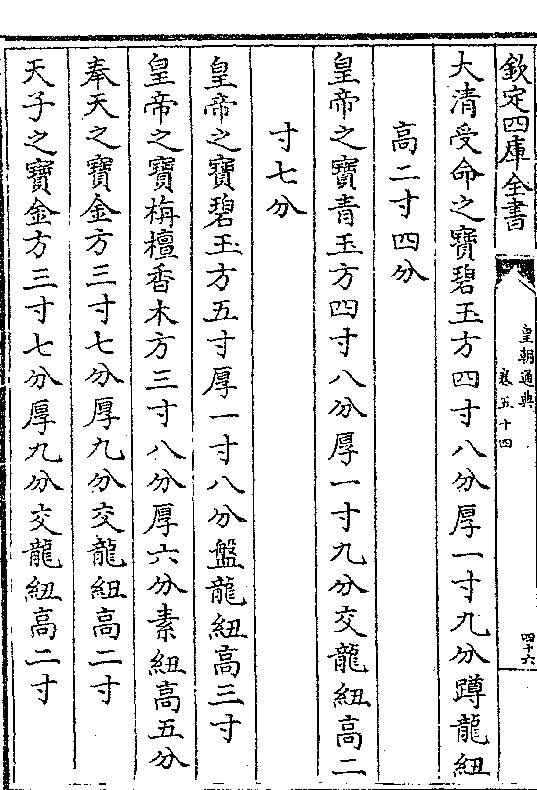 欽定四庫全書
皇朝通典
卷五十四
四十六
大清受命之寶碧玉方四寸八分厚一寸九分蹲龍紐
高二寸四分
皇帝之寶青玉方四寸八分厚一寸九分交龍紐高二
寸七分
皇帝之寶碧玉方五寸厚一寸八分盤龍紐高三寸
皇帝之寶栴檀香木方三寸八分厚六分素紐高五分
奉天之寶金方三寸七分厚九分交龍紐高二寸
天子之寶金方三寸七分厚九分交龍紐高二寸